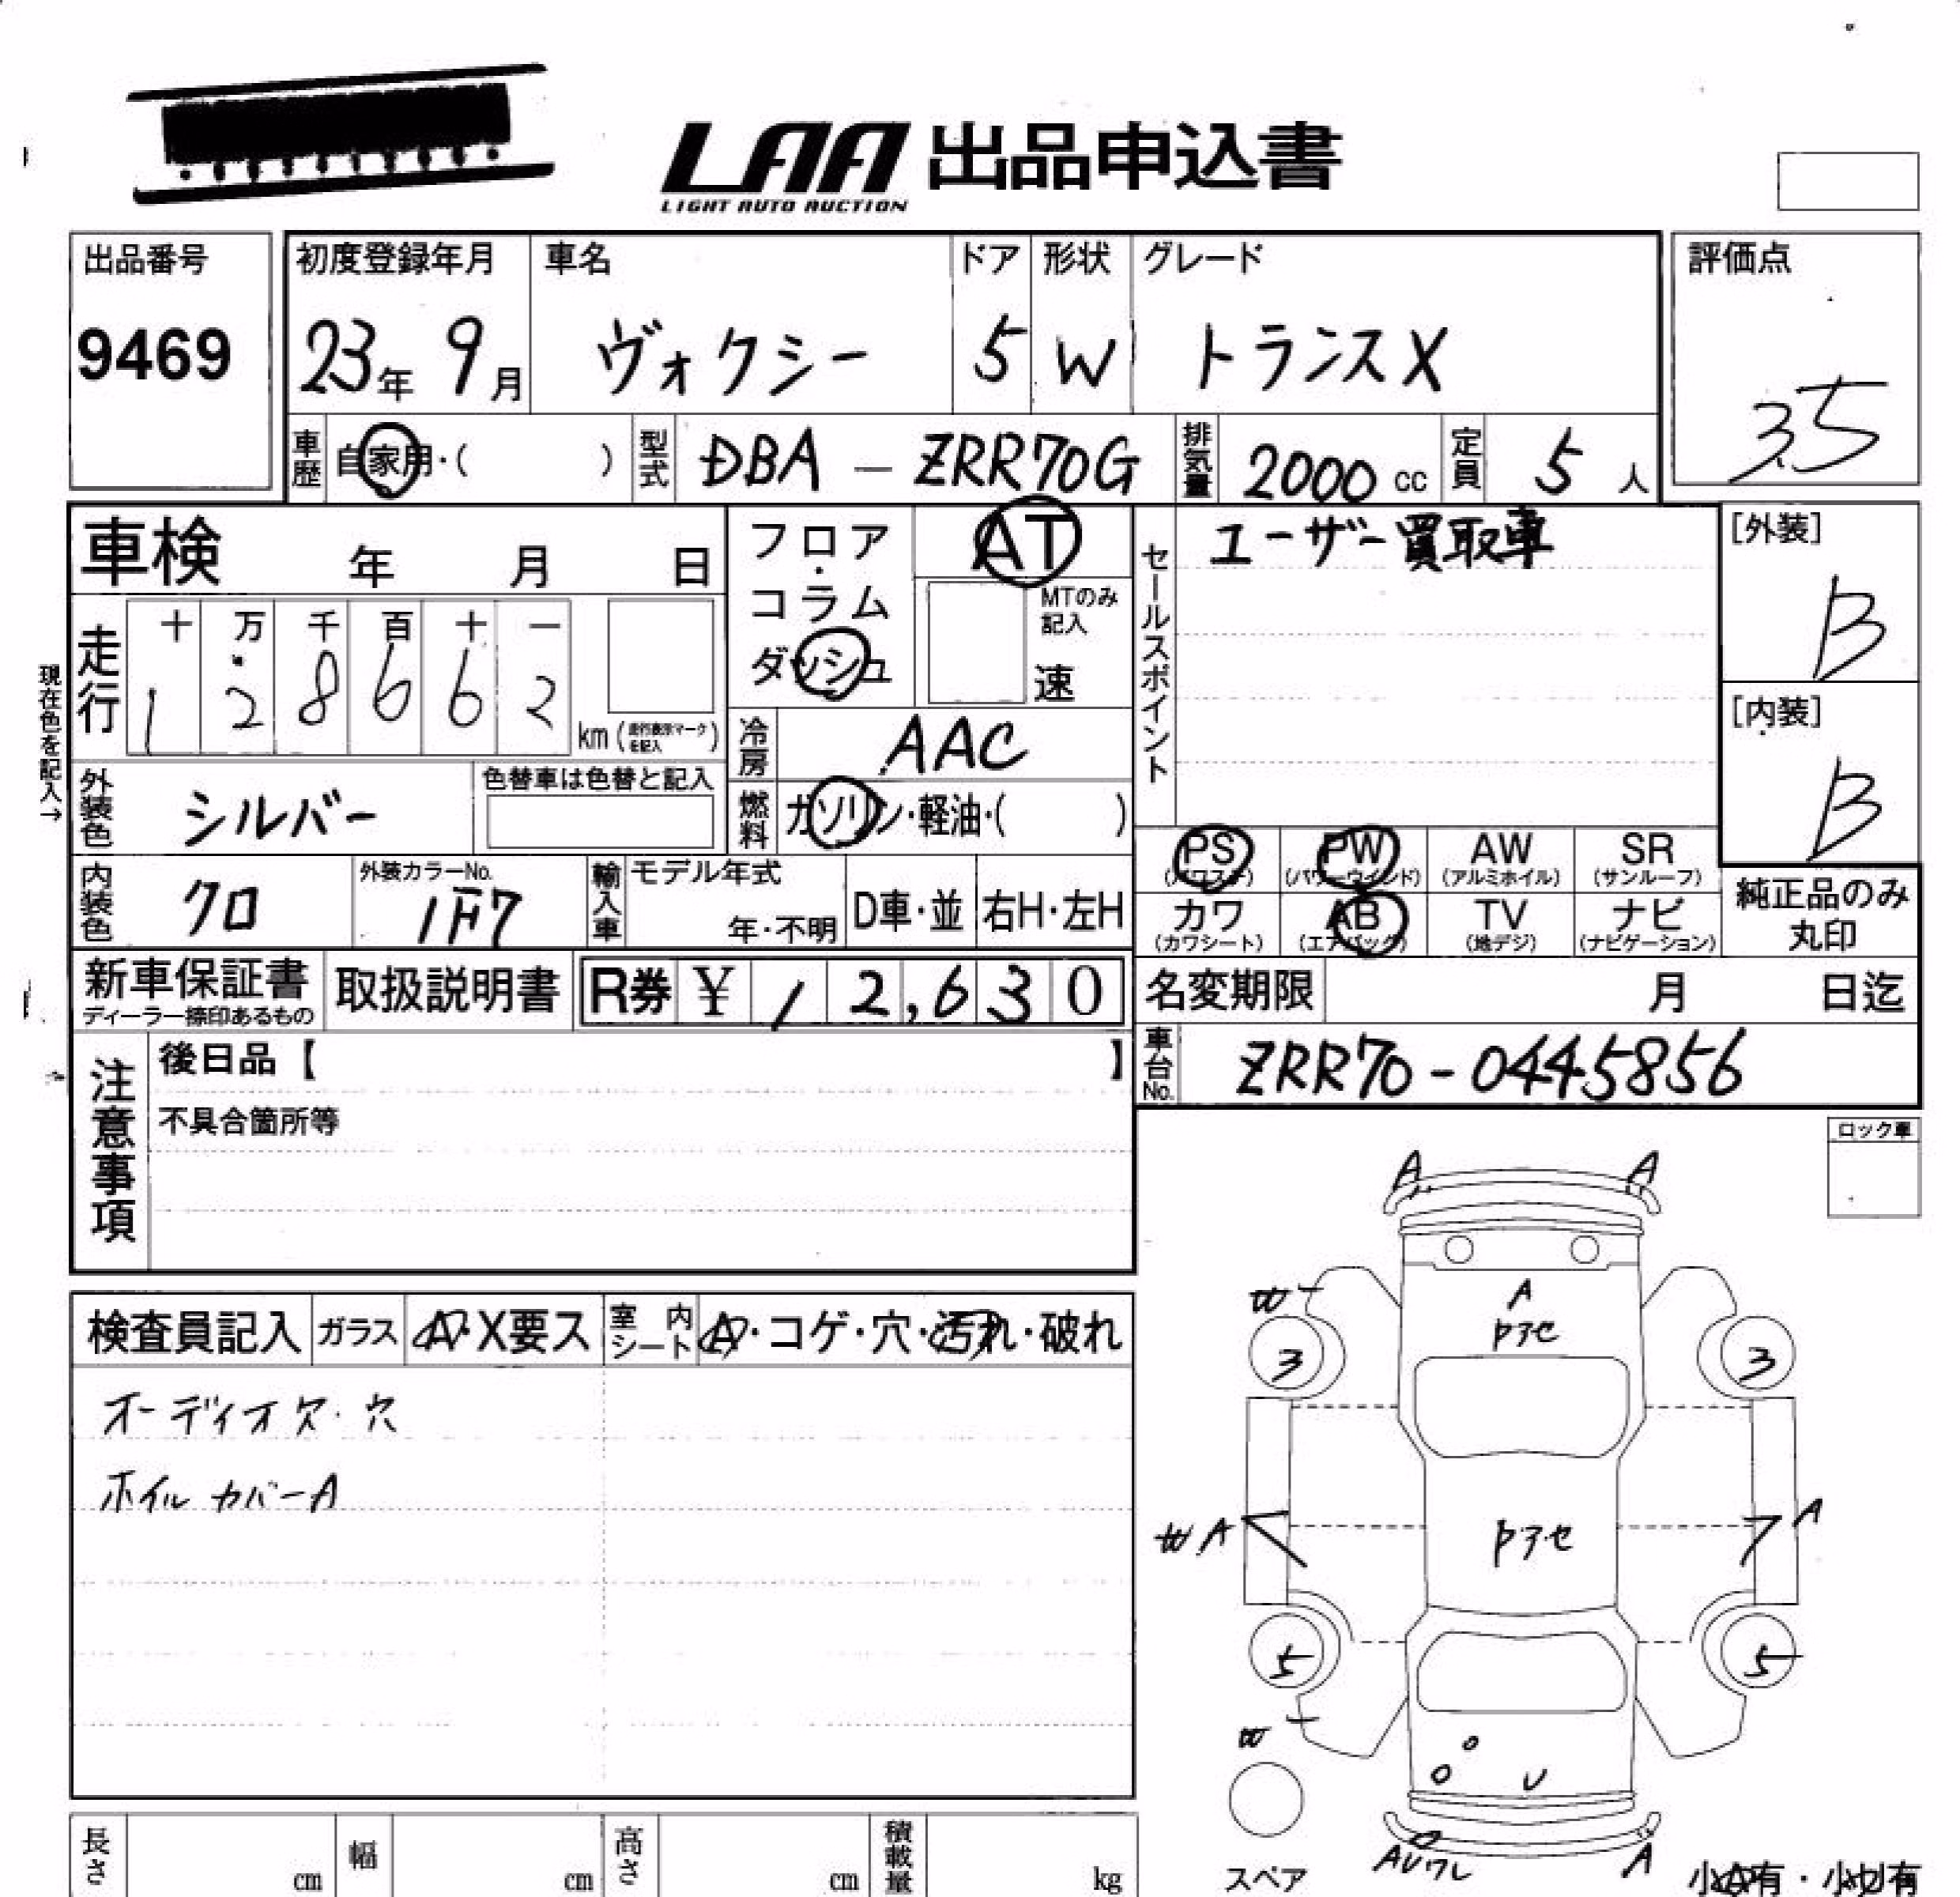 LAA 出品申込書
LIGHT AUTO AUCTION
出品番号
9469
初度登録年月
23年 9月
車名
ヴォクシー
ドア
5
形状
W
グレード
トランスX
評価点
3.5
車歴 自家用・( )
型式 DBA - ZRR70G
排気量 2000 cc
定員 5 人
車検 年 月 日
フロア・コラム
ダッシュ
AT
MTのみ記入
速
セールスポイント
ユーザー買取車
[外装]
B
[内装]
B
現在色を記入→
走行
十 万 千 百 十 一
1 2 8 6 6 2
km (走行表示マークを記入)
冷房 AAC
燃料 ガソリン・軽油・( )
外装色 シルバー
色替車は色替と記入
内装色 クロ
外装カラーNo.
1F7
輸入車 モデル年式
年・不明
D車・並
右H・左H
PS (パワステ)
PW (パワーウインド)
AW (アルミホイル)
SR (サンルーフ)
カワ (カワシート)
AB (エアバッグ)
TV (地デジ)
ナビ (ナビゲーション)
純正品のみ
丸印
新車保証書
ディーラー捺印あるもの
取扱説明書
R券 ¥ 12,630
名変期限 月 日迄
車台No. ZRR70-0445856
注意事項
後日品【 】
不具合箇所等
ロック車
検査員記入
ガラス A・X要ス
室内シート A・コゲ・穴・汚れ・破れ
オーディオ欠・穴
ホイルカバーA
A A
W A
Pアセ
3 3
W A Pアセ A
5 5
W
U
AUワレ A
スペア
小A有・小U有
長さ cm
幅 cm
高さ cm
積載量 kg